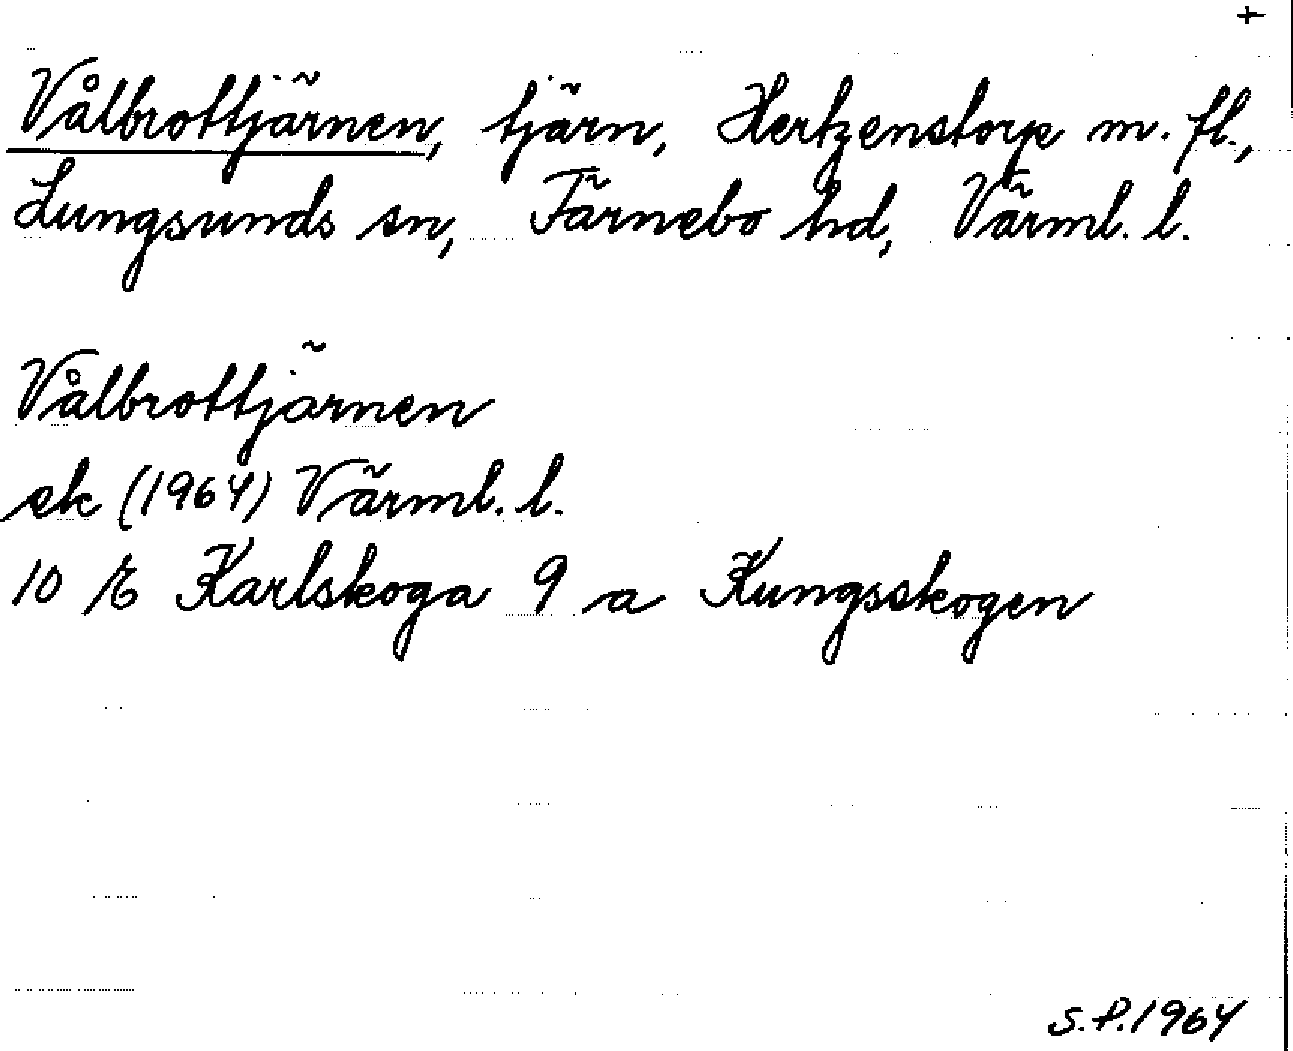 +
Vålbrottjärnen, tjärn, Hertzenstorp m. fl.,
Lungsunds sn, Färnebo hd, Värml. l.
Vålbrottjärnen
ek (1964) Värml. l.
10 E Karlskoga 9 a Kungsskogen
S.P. 1964